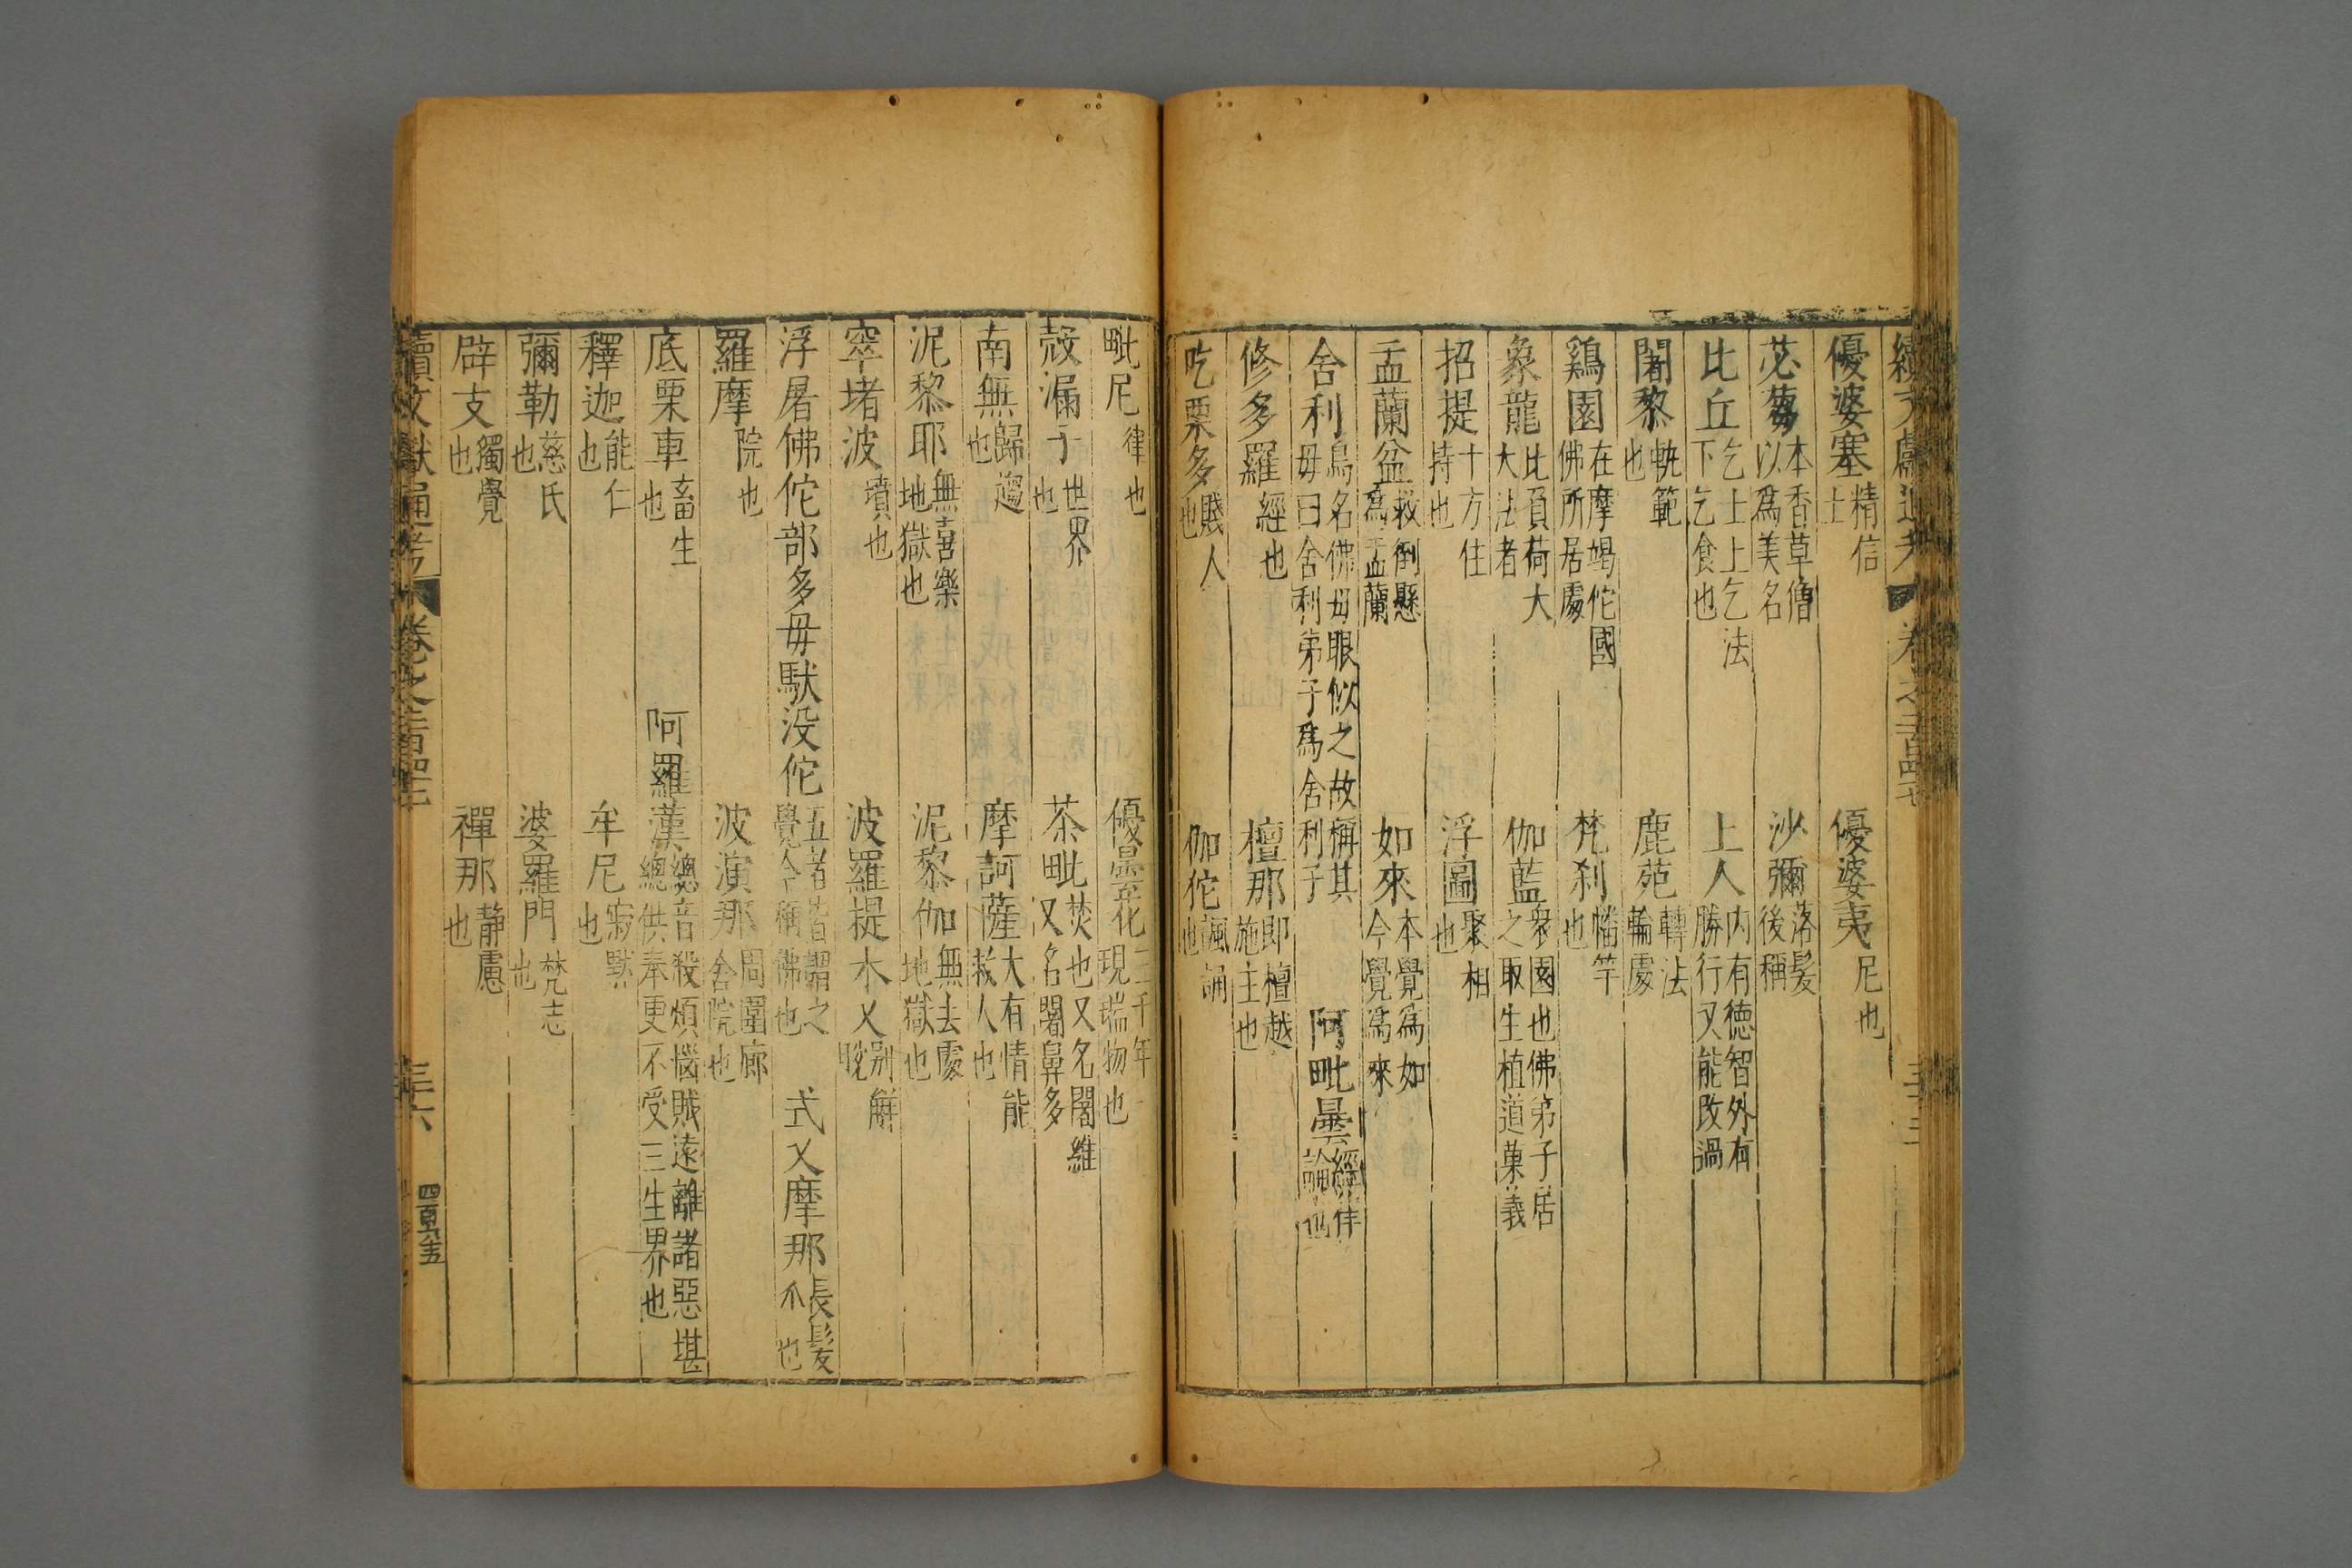 優婆塞精信士 優婆夷尼也
苾蒭本香草僧以為美名 沙彌落髮後稱
比丘乞士上乞法下乞食也 上人内有德智外有勝行又能改過
闍黎軌範也 鹿苑轉法輪處
鷄園在摩竭佗國佛所居處 梵刹幡竿也
象龍比負荷大大法者 伽藍衆園也佛弟子居之取生植道菓義
招提十方住持也 浮圖聚相也
盂蘭盆救倒懸為盂蘭 如來本覺為如今覺為來
舍利鳥名佛母眼似之故稱其母曰舍利弟子為舍利子 阿毗曇經律論也
修多羅經也 檀那即檀越施主也
吃栗多賤人也 伽佗諷誦也
毗尼律也 優曇花三千年一現瑞物也
殑漏于世界也 茶毗焚也又名闍維又名闍鼻多
南無歸趨也 摩訶薩大有情能救人也
泥黎耶無喜樂地獄也 泥黎伽無去處地獄也
窣堵波墳也 波羅提木叉别解脱
浮屠佛佗部多毋馱没佗五者皆謂之覺今稱佛也 式叉摩那長髮尒也
羅摩院也 波演那周圍廊舍院也
底栗車畜生也 阿羅漢總音殺煩惱賊遠離諸惡堪總供奉更不受三生界也
釋迦能仁也 牟尼寂默也
彌勒慈氏也 婆羅門梵志也
辟支獨覺也 禪那静慮也
續文獻通考 卷之二百四十 三六